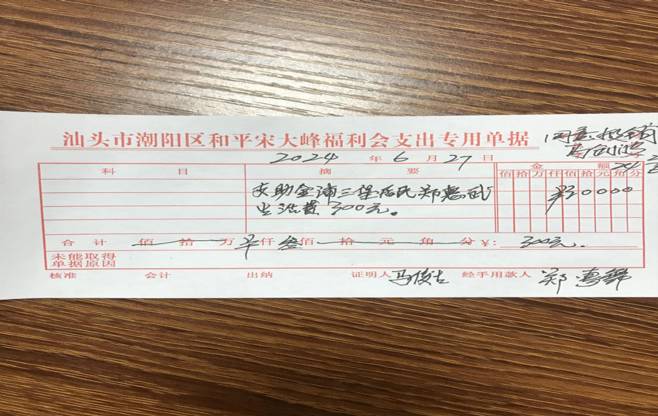 汕头市潮阳区和平宋大峰福利会支出专用单据
同意报销
2024年6月27日
科目 摘要 金额
佰拾万仟佰拾元角分
支助金浦三堡居民郑惠武
生活费300元。
¥30000
合计 佰拾万 仟叁佰拾元角分 ¥: 300元.
未能取得
单据原因
核准 会计 出纳 证明人 经手用款人 郑